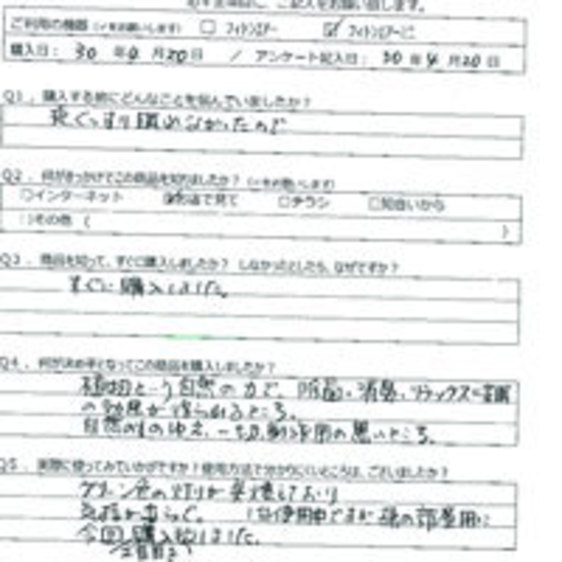 必ず全項目に、ご記入をお願い致します。
ご利用の機器 (✓をお願いします) □ フィトンエアー ☑ フィトンエアーミニ
購入日: 30 年 4 月 20 日 / アンケート記入日: 30 年 4 月 20 日
Q1. 購入する前にどんなことを悩んでいましたか?
夜ぐっすり眠れなかったので
Q2. 何がきっかけでこの商品を知りましたか? (✓をお願いします)
□インターネット で見て □チラシ □知合いから
□その他 ( )
Q3. 商品を知って、すぐに購入しましたか? しなかったとしたら、なぜですか?
すぐに購入しました。
Q4. 何が決め手となってこの商品を購入しましたか?
植物という自然の力で、除菌・消臭・リラックス
の効果が得られるところ。
自然のものゆえ、一切副作用の無いところ。
Q5. 実際に使ってみていかがですか?使用方法で分かりにくいところは、ございましたか?
グリーン色の灯りが 点灯しており
気持が安らぐ。 1台使用中ですが 部屋用に
今回購入しました。